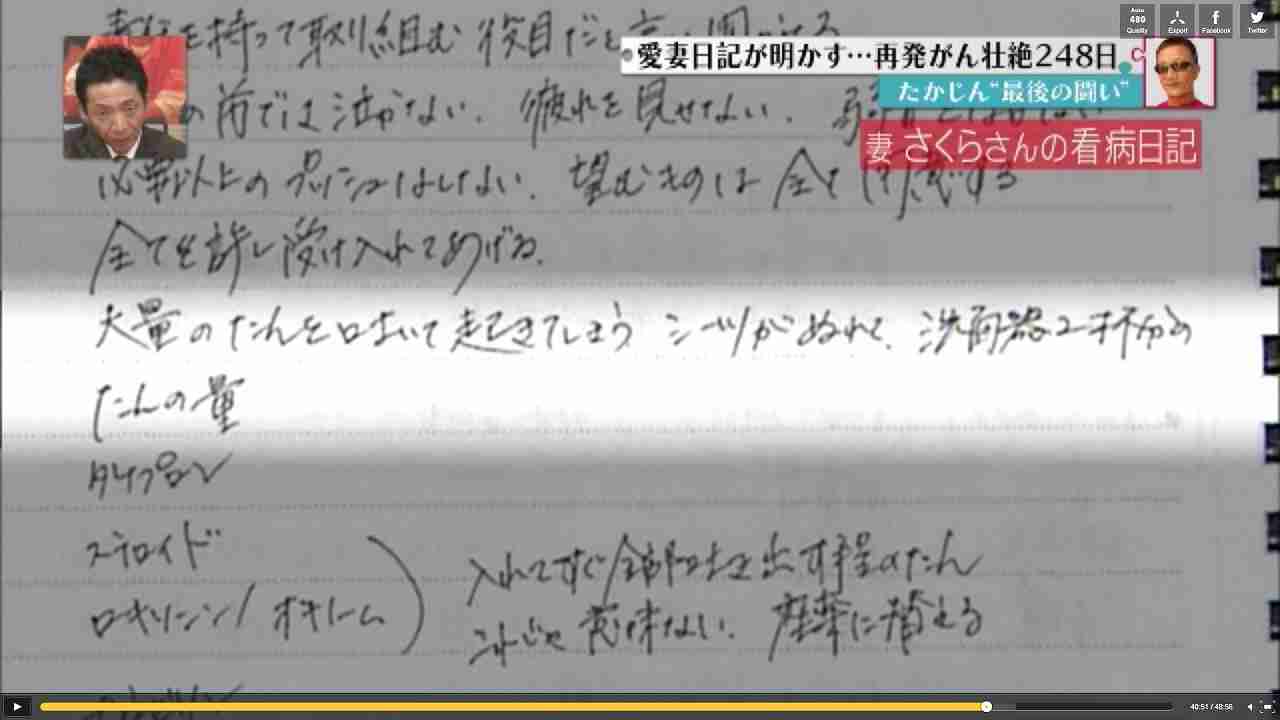 Auto
480
Quality
Export
Facebook
Twitter
愛妻日記が明かす…再発がん壮絶248日
たかじん“最後の闘い”
妻 さくらさんの看病日記
責任を持って取り組む役目だと
の前では泣かない。疲れを見せない。
必要以上の はしない。望むものは全て
全てを許し受け入れてあげる。
大量のたんを吐いて起きてしまう シーツがぬれて、洗面器2杯分の
たんの量
タケプロン
ステロイド
ロキソニン/オキノーム
入れてすぐ全部吐き出す程のたん
これじゃ意味ない。座薬に替える
40:51 / 48:56